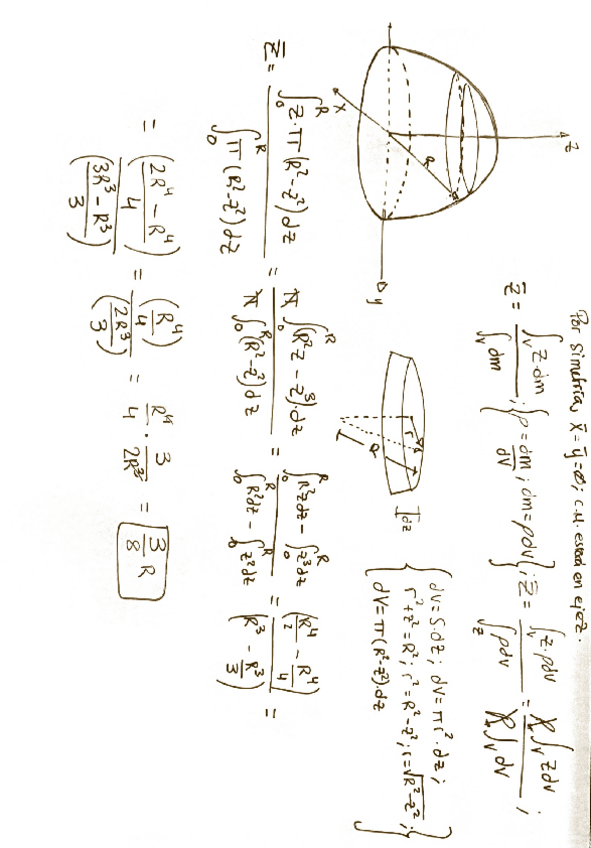 Por simetría, x̄ = ȳ = 0; c.M. estará en eje z.
z̄ = ∫v z·dm / ∫v dm ; { ρ = dm/dV ; dm = ρdv } ; z̄ = ∫v z·ρdv / ∫z ρdv = ρ∫v zdv / ρ∫v dv ;
z
R
x
y
r
R
dz
dv = S·dz ; dv = πr²·dz ;
r² + z² = R² ; r² = R² - z² ; r = √R² - z² ;
dV = π(R² - z²)·dz
z̄ = ∫₀ᴿ z·π(R² - z²)dz / ∫₀ᴿ π(R² - z²)dz = π∫₀ᴿ(R²z - z³)·dz / π∫₀ᴿ(R² - z²)dz = ∫₀ᴿ R²zdz - ∫₀ᴿ z³dz / ∫₀ᴿ R²dz - ∫₀ᴿ z²dz = (R⁴/2 - R⁴/4) / (R³ - R³/3) =
= (2R⁴ - R⁴ / 4) / (3R³ - R³ / 3) = (R⁴/4) / (2R³/3) = R⁴/4 · 3/2R³ = 3/8 R